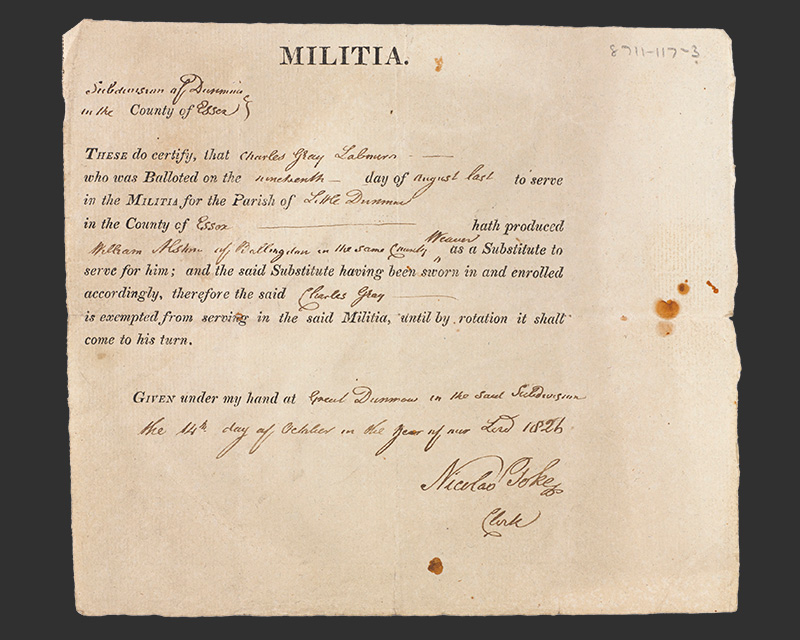 MILITIA.
8711-117-3
Subdivision of Dunmow
in the County of Essex
THESE do certify, that Charles Gray Labourer
who was Balloted on the nineteenth day of August last to serve
in the MILITIA for the Parish of Little Dunmow
in the County of Essex hath produced
William Alston of Ballingdon in the same County Weaver as a Substitute to
serve for him; and the said Substitute having been sworn in and enrolled
accordingly, therefore the said Charles Gray
is exempted from serving in the said Militia, until by rotation it shall
come to his turn.
GIVEN under my hand at Great Dunmow in the said Subdivision
the 14th day of October in the year of our Lord 1826
Nicolas Toke
Clerk